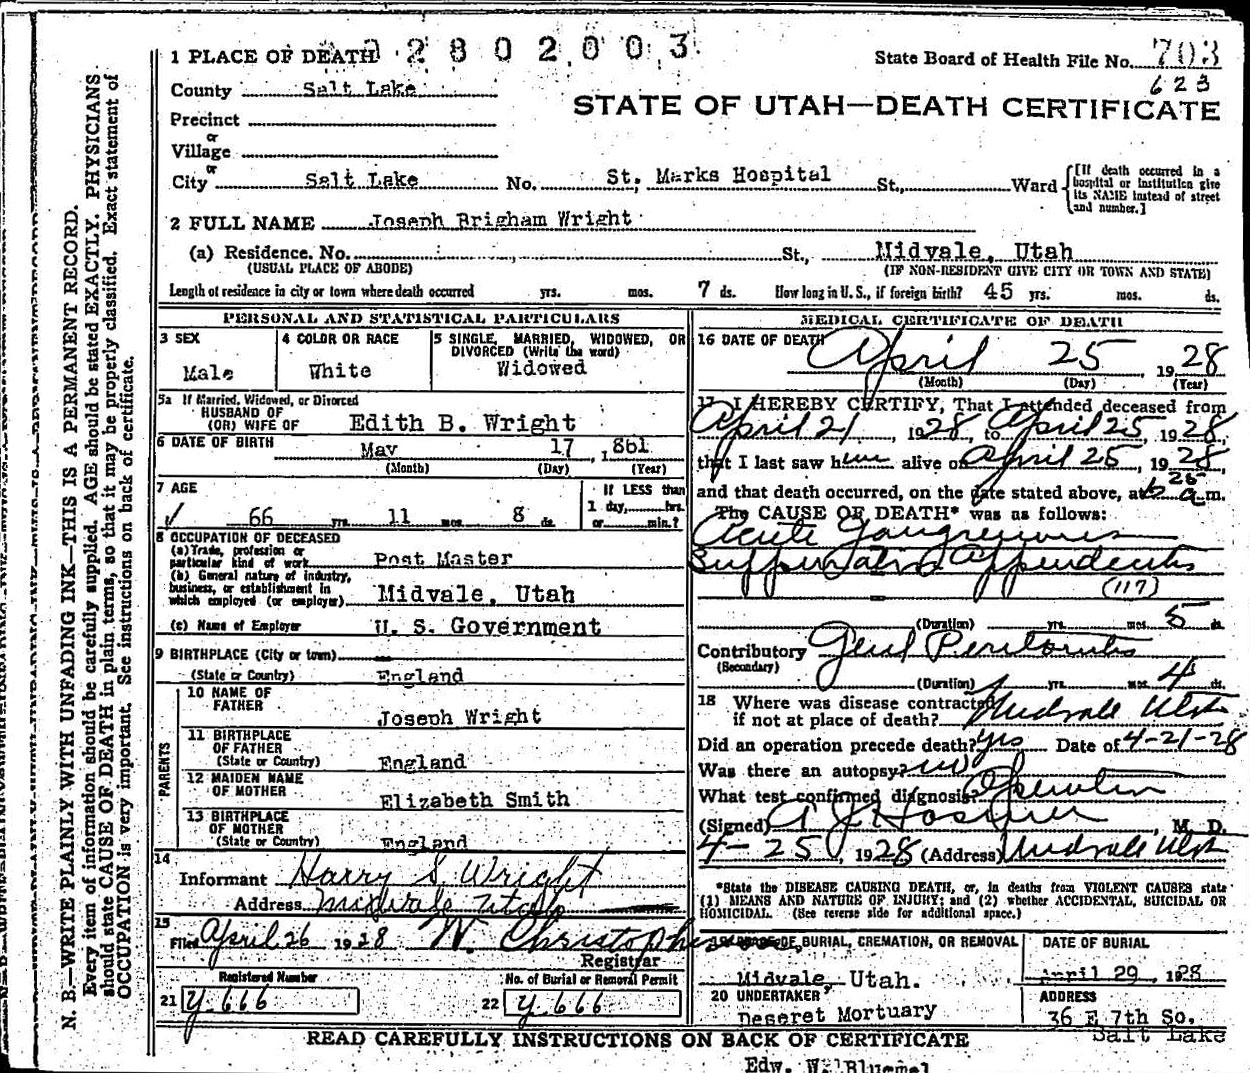 1 PLACE OF DEATH 2802003
State Board of Health File No. 703
623
County Salt Lake
STATE OF UTAH—DEATH CERTIFICATE
Precinct
or
Village
or
City Salt Lake No. St. Marks Hospital St., Ward
[If death occurred in a
hospital or institution give
its NAME instead of street
and number.]
2 FULL NAME Joseph Brigham Wright
(a) Residence. No. St., Midvale, Utah
(USUAL PLACE OF ABODE) (IF NON-RESIDENT GIVE CITY OR TOWN AND STATE)
Length of residence in city or town where death occurred yrs. mos. 7 ds. How long in U. S., if foreign birth? 45 yrs. mos. ds.
PERSONAL AND STATISTICAL PARTICULARS
3 SEX
Male
4 COLOR OR RACE
White
5 SINGLE, MARRIED, WIDOWED, OR
DIVORCED (Write the word)
Widowed
5a If Married, Widowed, or Divorced
HUSBAND OF
(OR) WIFE OF Edith B. Wright
6 DATE OF BIRTH May 17, 1861
(Month) (Day) (Year)
7 AGE
66 yrs. 11 mos. 8 ds.
If LESS than
1 day, hrs.
or min.?
8 OCCUPATION OF DECEASED
(a) Trade, profession or
particular kind of work Post Master
(b) General nature of industry,
business, or establishment in
which employed (or employer) Midvale, Utah
(c) Name of Employer U. S. Government
9 BIRTHPLACE (City or town)
(State or Country) England
PARENTS
10 NAME OF
FATHER Joseph Wright
11 BIRTHPLACE
OF FATHER
(State or Country) England
12 MAIDEN NAME
OF MOTHER Elizabeth Smith
13 BIRTHPLACE
OF MOTHER
(State or Country) England
14
Informant Harry S. Wright
Address Midvale Utah
15
Filed April 26 1928 W. Christopherson
Registrar
Registered Number
21 y 666
No. of Burial or Removal Permit
22 y 666
MEDICAL CERTIFICATE OF DEATH
16 DATE OF DEATH
April 25, 1928
(Month) (Day) (Year)
17 I HEREBY CERTIFY, That I attended deceased from
April 21, 1928, to April 25, 1928,
that I last saw him alive on April 25, 1928,
and that death occurred, on the date stated above, at 6 25 a.m.
The CAUSE OF DEATH* was as follows:
Acute Gangrenous
Suppurative Appendicitis
(117)
(Duration) yrs. mos. 5 ds.
Contributory Genl Peritonitis
(Secondary)
(Duration) yrs. mos. 4 ds.
18 Where was disease contracted
if not at place of death? Midvale Utah
Did an operation precede death? yes Date of 4-21-28
Was there an autopsy? no
What test confirmed diagnosis? Operation
(Signed) M. D.
4-25, 1928 (Address) Midvale Utah
*State the DISEASE CAUSING DEATH, or, in deaths from VIOLENT CAUSES state
(1) MEANS AND NATURE OF INJURY; and (2) whether ACCIDENTAL, SUICIDAL OR
HOMICIDAL. (See reverse side for additional space.)
19 PLACE OF BURIAL, CREMATION, OR REMOVAL
Midvale, Utah.
DATE OF BURIAL
April 29, 1928
20 UNDERTAKER
Deseret Mortuary
ADDRESS
36 E 7th So.
Salt Lake
READ CAREFULLY INSTRUCTIONS ON BACK OF CERTIFICATE
N. B.—WRITE PLAINLY WITH UNFADING INK—THIS IS A PERMANENT RECORD.
Every item of information should be carefully supplied. AGE should be stated EXACTLY. PHYSICIANS
should state CAUSE OF DEATH in plain terms, so that it may be properly classified. Exact statement of
OCCUPATION is very important. See instructions on back of certificate.